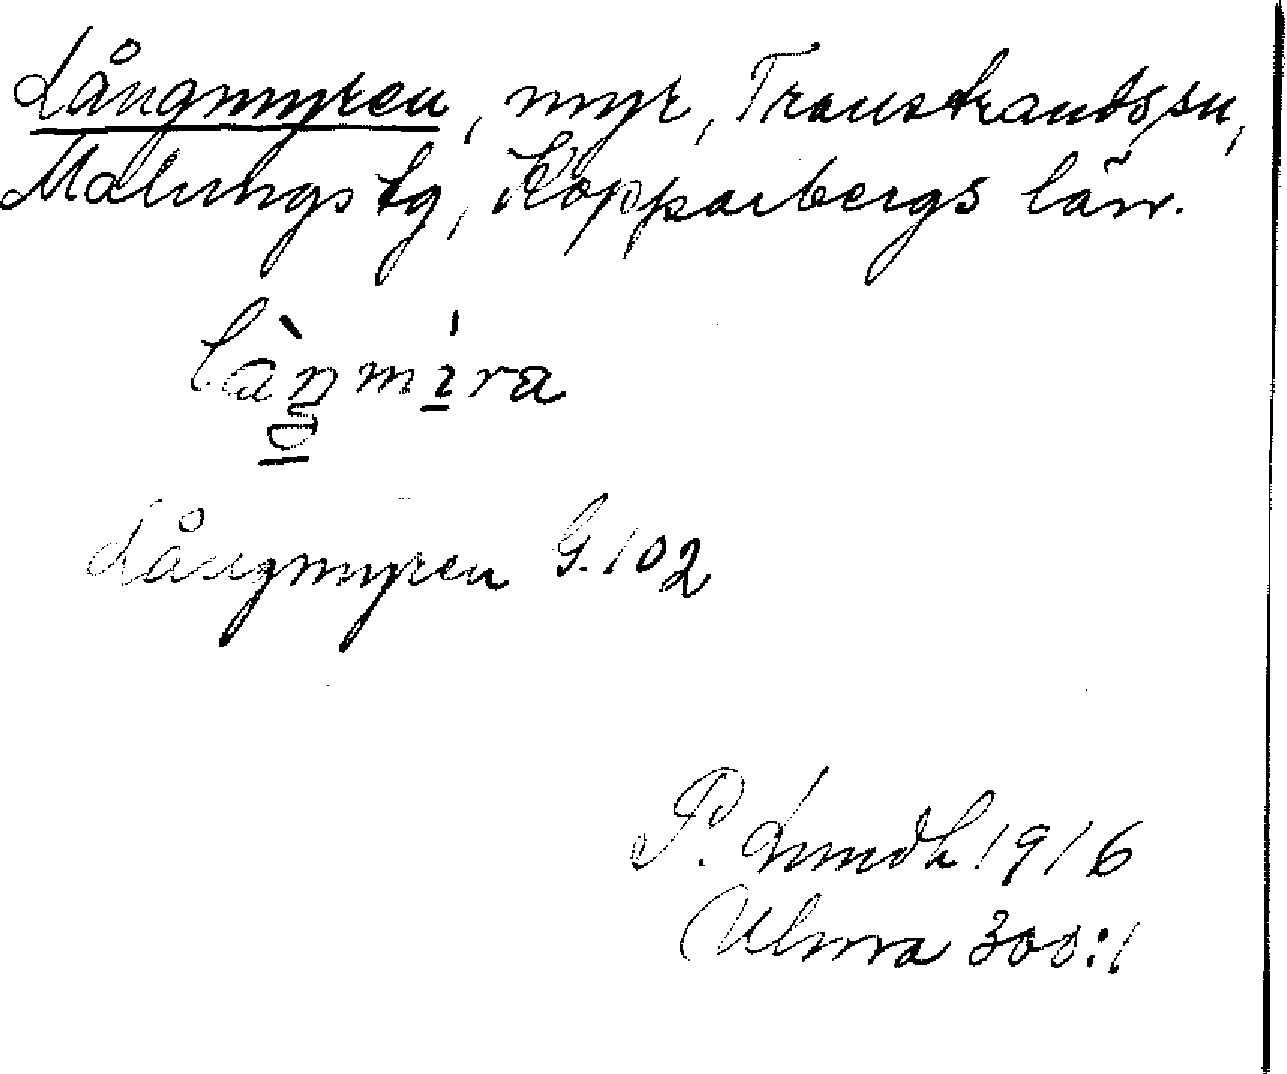 Långmyren, myr, Transtrands sn,
Malungs tg, Kopparbergs län.
Långmyren G. 102
P. Lundh 1916
(Ulma 300:1